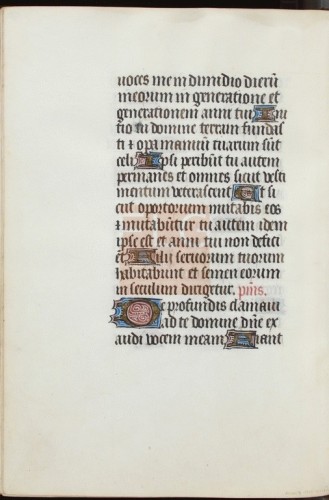 uoces me in dimidio dierū
meorum in generatione et
generationem anni tui Ini
tio tu domine terram fundas
ti ⁊ opa manuum tuarum sūt
celi Ipsi peribūt tu autem
permanes et omnes sicut vesti
mentum veterascent Et si
cut opertorium mutabis eos
⁊ mutabūtur tu autem idem
ipse es et anni tui non defici
ent Filij seruorum tuorum
habitabunt et semen eorum
in seculum dirigetur. p̄s.
De profundis clamaui
ad te domine dn̄e ex
audi vocem meam Fiant